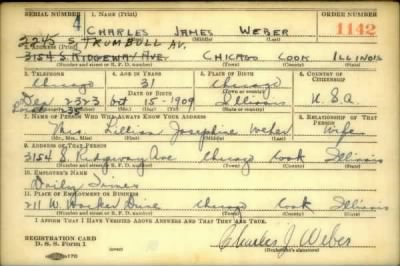 SERIAL NUMBER 1. NAME (Print) ORDER NUMBER
4 CHARLES JAMES WEBER 1142
2245 S. TRUMBULL AV. (First) (Middle) (Last)
2. ADDRESS (Print)
3154 S. RIDGEWAY AVE. CHICAGO COOK ILLINOIS
(Number and street or R. F. D. number) (Town) (County) (State)
3. TELEPHONE 4. AGE IN YEARS 5. PLACE OF BIRTH 6. COUNTRY OF CITIZENSHIP
Chicago 31 Chicago
DATE OF BIRTH (Town or county)
2323 Oct 15-1909 Illinois U.S.A.
(Mo.) (Day) (Yr.) (State or country)
7. NAME OF PERSON WHO WILL ALWAYS KNOW YOUR ADDRESS 8. RELATIONSHIP OF THAT PERSON
Mrs. Lillian Josephine Weber Wife
(Mr., Mrs., Miss) (First) (Middle) (Last)
9. ADDRESS OF THAT PERSON
3154 S. Ridgeway Ave Chicago Cook Illinois
(Number and street or R. F. D. number) (Town) (County) (State)
10. EMPLOYER'S NAME
Daily Times
11. PLACE OF EMPLOYMENT OR BUSINESS
211 W. Wacker Drive Chicago Cook Illinois
(Number and street or R. F. D. number) (Town) (County) (State)
I AFFIRM THAT I HAVE VERIFIED ABOVE ANSWERS AND THAT THEY ARE TRUE.
REGISTRATION CARD
D. S. S. Form 1 Charles J. Weber
(Registrant's signature)